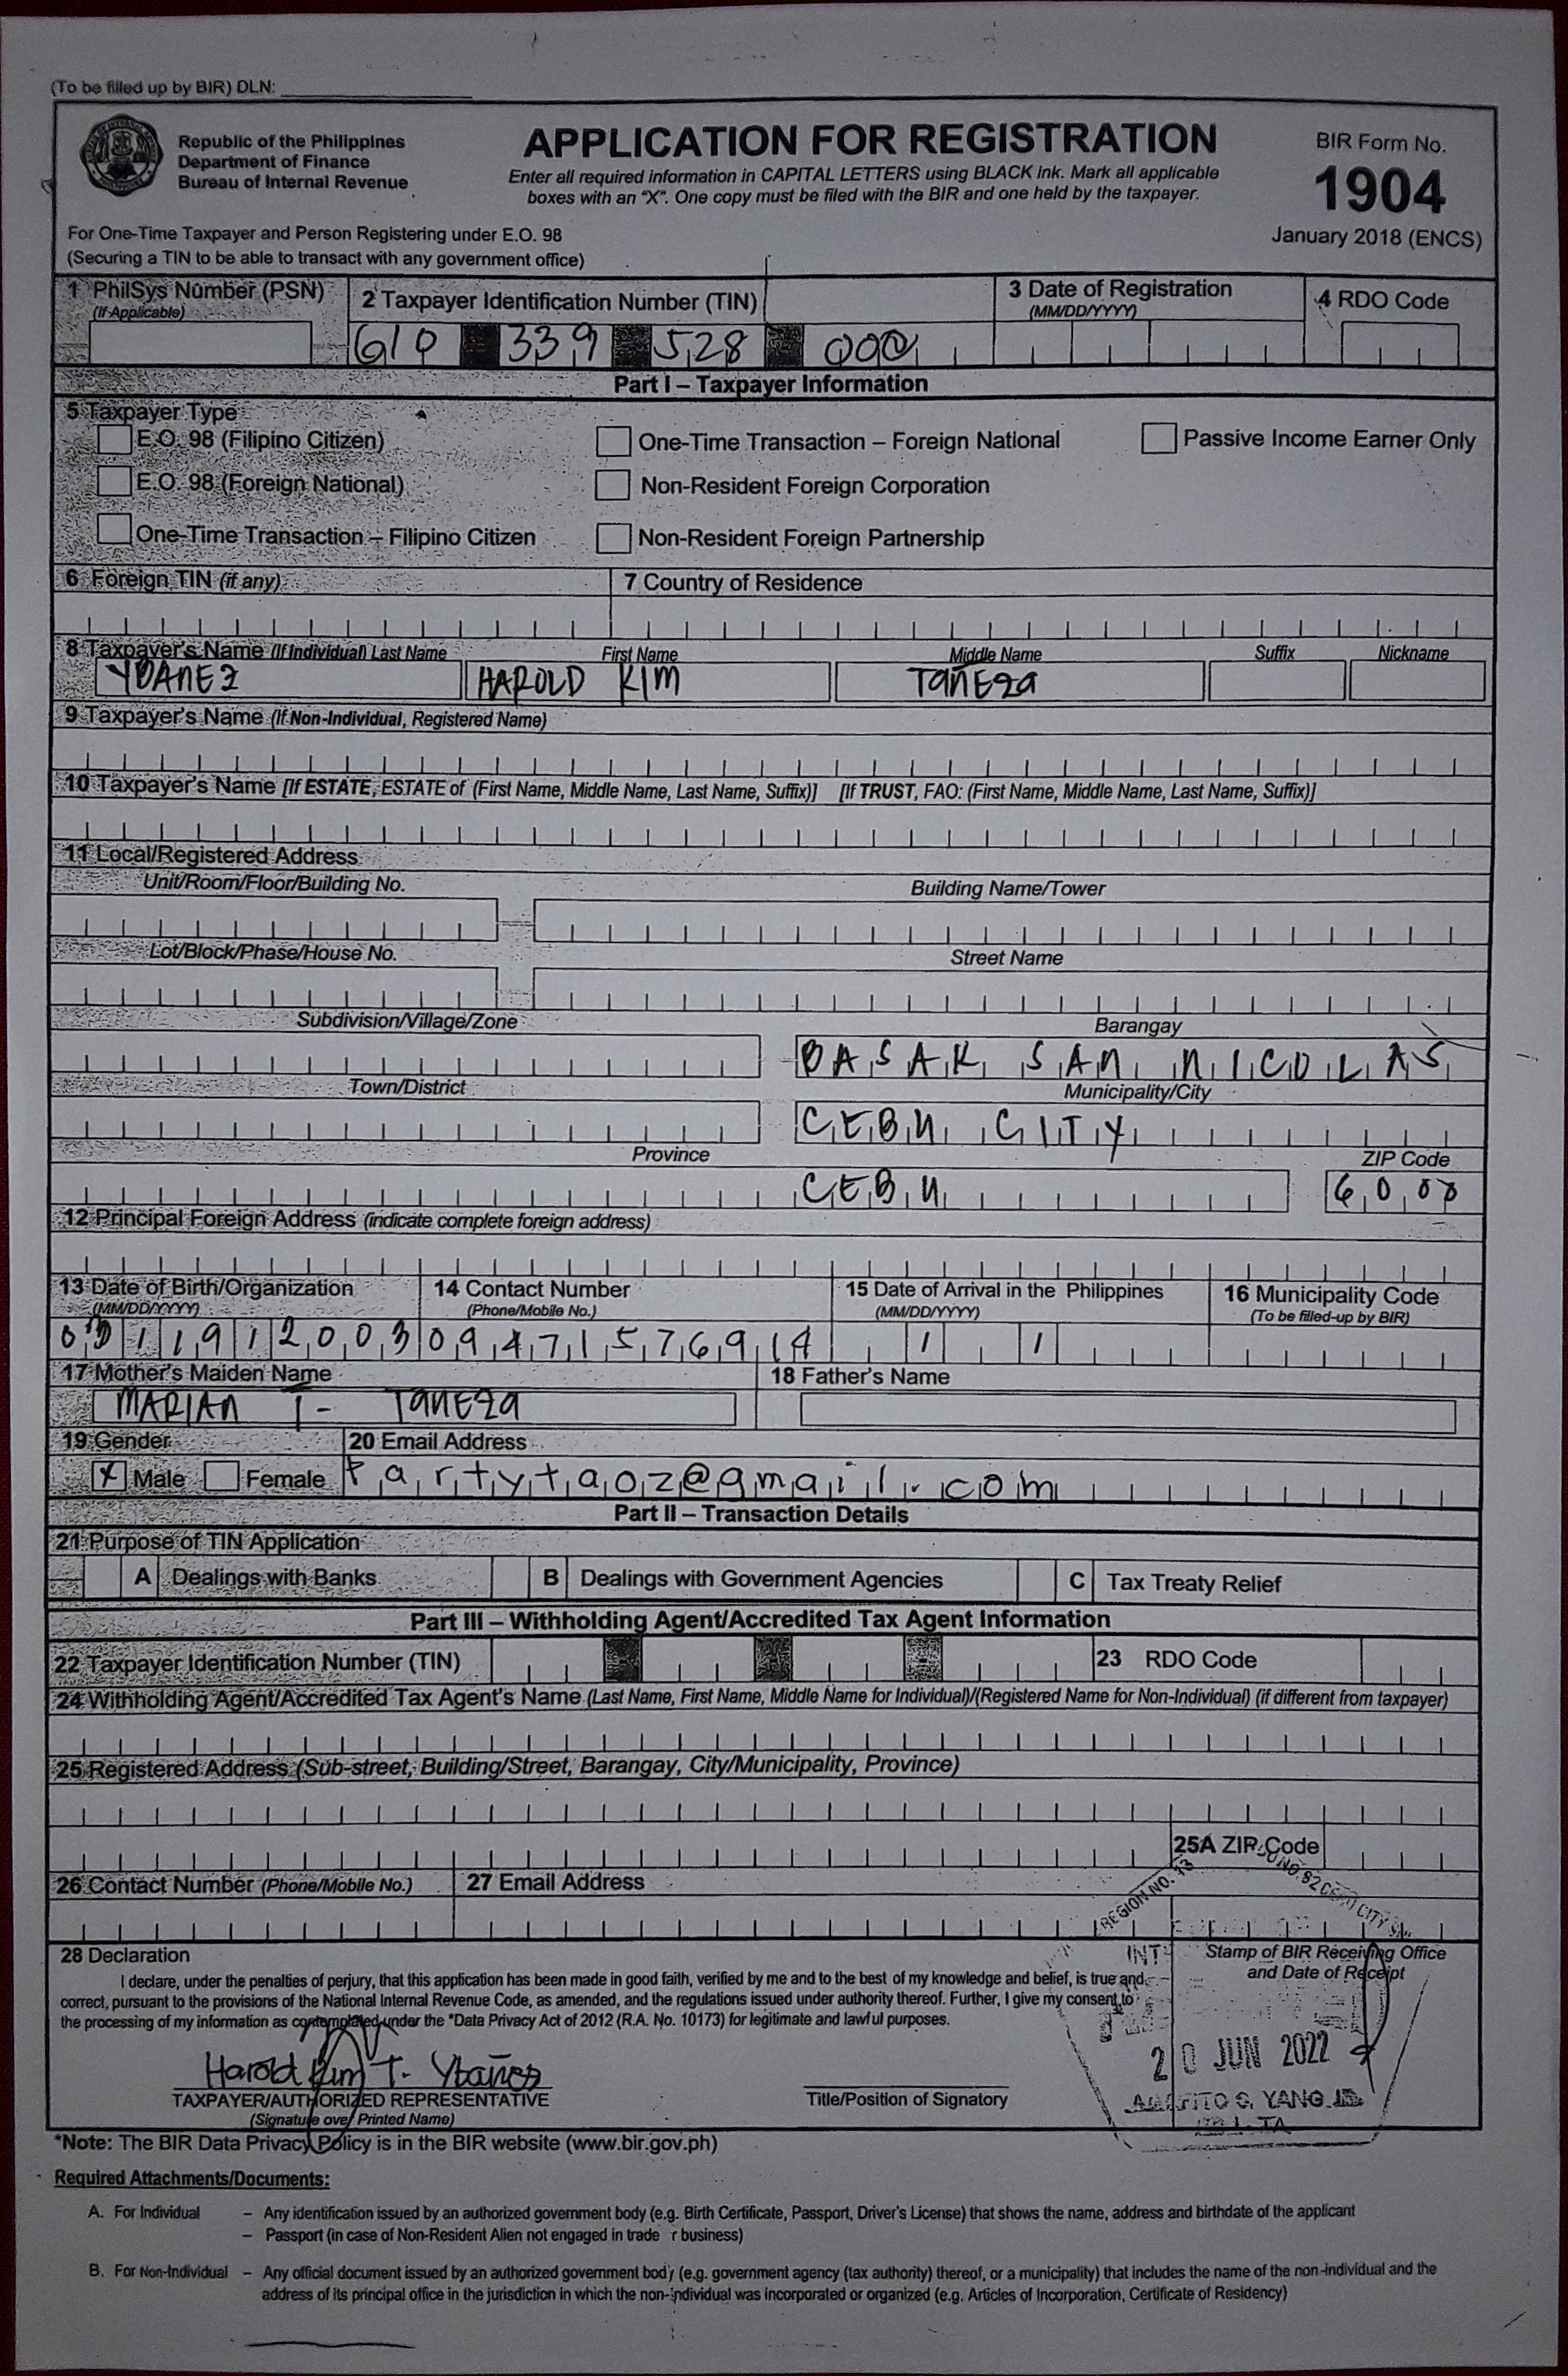 (To be filled up by BIR) DLN:
Republic of the Philippines
Department of Finance
Bureau of Internal Revenue
APPLICATION FOR REGISTRATION
Enter all required information in CAPITAL LETTERS using BLACK ink. Mark all applicable
boxes with an "X". One copy must be filed with the BIR and one held by the taxpayer.
BIR Form No.
1904
January 2018 (ENCS)
For One-Time Taxpayer and Person Registering under E.O. 98
(Securing a TIN to be able to transact with any government office)
1 PhilSys Number (PSN)
(If Applicable)
2 Taxpayer Identification Number (TIN)
3 Date of Registration
(MM/DD/YYYY)
4 RDO Code
610 339 528 000
Part I – Taxpayer Information
5 Taxpayer Type
E.O. 98 (Filipino Citizen)
One-Time Transaction – Foreign National
Passive Income Earner Only
E.O. 98 (Foreign National)
Non-Resident Foreign Corporation
One-Time Transaction – Filipino Citizen
Non-Resident Foreign Partnership
6 Foreign TIN (if any)
7 Country of Residence
8 Taxpayer's Name (If Individual) Last Name First Name Middle Name Suffix Nickname
YBANEZ HAROLD KIM TANEZA
9 Taxpayer's Name (If Non-Individual, Registered Name)
10 Taxpayer's Name [If ESTATE, ESTATE of (First Name, Middle Name, Last Name, Suffix)] [If TRUST, FAO: (First Name, Middle Name, Last Name, Suffix)]
11 Local/Registered Address
Unit/Room/Floor/Building No. Building Name/Tower
Lot/Block/Phase/House No. Street Name
Subdivision/Village/Zone Barangay
BASAK SAN NICOLAS
Town/District Municipality/City
CEBU CITY
Province ZIP Code
CEBU 6000
12 Principal Foreign Address (indicate complete foreign address)
13 Date of Birth/Organization
(MM/DD/YYYY)
14 Contact Number
(Phone/Mobile No.)
15 Date of Arrival in the Philippines
(MM/DD/YYYY)
16 Municipality Code
(To be filled-up by BIR)
/ /
17 Mother's Maiden Name
18 Father's Name
MARIAN T- TANEZA
19 Gender
20 Email Address
X Male Female partytaoz@gmail.com
Part II – Transaction Details
21 Purpose of TIN Application
A Dealings with Banks B Dealings with Government Agencies C Tax Treaty Relief
Part III – Withholding Agent/Accredited Tax Agent Information
22 Taxpayer Identification Number (TIN)
23 RDO Code
24 Withholding Agent/Accredited Tax Agent's Name (Last Name, First Name, Middle Name for Individual)/(Registered Name for Non-Individual) (if different from taxpayer)
25 Registered Address (Sub-street, Building/Street, Barangay, City/Municipality, Province)
25A ZIP Code
26 Contact Number (Phone/Mobile No.)
27 Email Address
REGION NO. 13
28 Declaration
I declare, under the penalties of perjury, that this application has been made in good faith, verified by me and to the best of my knowledge and belief, is true and
correct, pursuant to the provisions of the National Internal Revenue Code, as amended, and the regulations issued under authority thereof. Further, I give my consent to
the processing of my information as contemplated under the *Data Privacy Act of 2012 (R.A. No. 10173) for legitimate and lawful purposes.
Stamp of BIR Receiving Office
and Date of Receipt
20 JUN 2022
YANG
Harold Kim T. Ybañez
TAXPAYER/AUTHORIZED REPRESENTATIVE
(Signature over Printed Name)
Title/Position of Signatory
*Note: The BIR Data Privacy Policy is in the BIR website (www.bir.gov.ph)
Required Attachments/Documents:
A. For Individual – Any identification issued by an authorized government body (e.g. Birth Certificate, Passport, Driver's License) that shows the name, address and birthdate of the applicant
– Passport (in case of Non-Resident Alien not engaged in trade r business)
B. For Non-Individual – Any official document issued by an authorized government body (e.g. government agency (tax authority) thereof, or a municipality) that includes the name of the non-individual and the
address of its principal office in the jurisdiction in which the non-individual was incorporated or organized (e.g. Articles of Incorporation, Certificate of Residency)